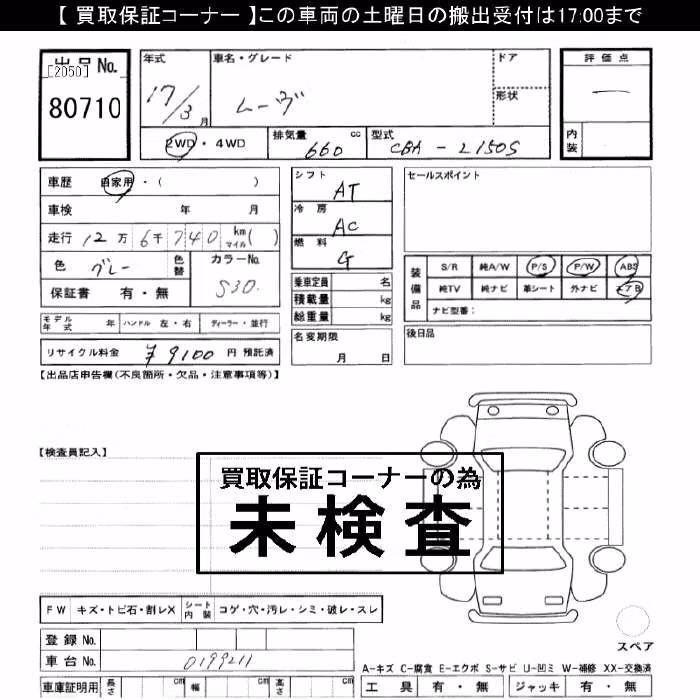 【 買取保証コーナー 】この車両の土曜日の搬出受付は17:00まで
出品 No.
[2050]
80710
年式
17/3月
車名・グレード
ムーヴ
ドア
形状
評価点
ー
内装
2WD・4WD
排気量 660 cc
型式 CBA-L150S
車歴 自家用・( )
車検 年 月
走行 12万6千740 km マイル ( )
色 グレー 色替
カラーNo. S30.
保証書 有・無
シフト AT
冷房 AC
燃料 G
乗車定員 名
積載量 kg
総重量 kg
セールスポイント
装備品
S/R 純A/W P/S P/W ABS
純TV 純ナビ 革シート 外ナビ エアB
ナビ型番:
モデル年式 年 ハンドル 左・右 ディーラー・並行
リサイクル料金 ¥9100 円 預託済
名変期限 月 日
後日品
【出品店申告欄(不良箇所・欠品・注意事項等)】
【検査員記入】
買取保証コーナーの為
未検査
FW キズ・トビ石・割レX シート内装 コゲ・穴・汚レ・シミ・破レ・スレ
登録 No.
車台 No. 0199211
車庫証明用 長さ cm 幅 cm 高さ cm
スペア
A-キズ C-腐食 E-エクボ S-サビ U-凹ミ W-補修 XX-交換済
工具 有・無 ジャッキ 有・無